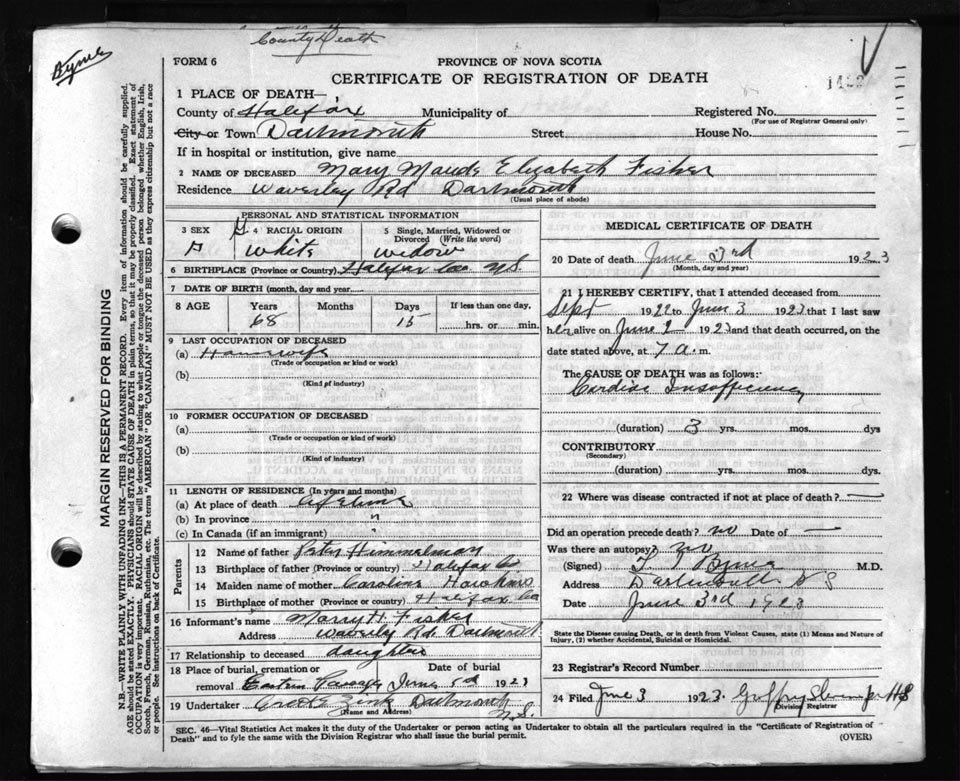 County Death
Byrne
FORM 6
PROVINCE OF NOVA SCOTIA
CERTIFICATE OF REGISTRATION OF DEATH
1 PLACE OF DEATH—
County of Halifax Municipality of Registered No.
(For use of Registrar General only)
City or Town Dartmouth Street House No.
If in hospital or institution, give name
2 NAME OF DECEASED Mary Maude Elizabeth Fisher
Residence Waverley Rd Dartmouth
(Usual place of abode)
PERSONAL AND STATISTICAL INFORMATION
3 SEX 4 RACIAL ORIGIN 5 Single, Married, Widowed or Divorced (Write the word)
White Widow
6 BIRTHPLACE (Province or Country) Halifax Co. N.S.
7 DATE OF BIRTH (month, day and year)
8 AGE Years Months Days If less than one day,
68 15 hrs. or min.
9 LAST OCCUPATION OF DECEASED
(a) Housewife
(Trade or occupation or kind or work)
(b)
(Kind of industry)
10 FORMER OCCUPATION OF DECEASED
(a)
(Trade or occupation or kind of work)
(b)
(Kind of industry)
11 LENGTH OF RESIDENCE (In years and months)
(a) At place of death lifetime
(b) In province "
(c) In Canada (if an immigrant) "
Parents
12 Name of father Peter Himmelman
13 Birthplace of father (Province or country) Halifax Co
14 Maiden name of mother Caroline Hawkins
15 Birthplace of mother (Province or country) Halifax Co
16 Informant's name H. Fisher
Address Waverly Rd. Dartmouth
17 Relationship to deceased daughter
18 Place of burial, cremation or removal Eastern Passage Date of burial June 5th 1923
19 Undertaker Dartmouth N.S.
(Name and Address)
MEDICAL CERTIFICATE OF DEATH
20 Date of death June 3rd 1923
(Month, day and year)
21 I HEREBY CERTIFY, that I attended deceased from
Sept 1922 to June 3 1923 that I last saw
her alive on June 2 1923 and that death occurred, on the
date stated above, at 7 a.m.
The CAUSE OF DEATH was as follows:
Cardiac Insufficiency
(duration) 3 yrs. mos. dys
CONTRIBUTORY
(Secondary)
(duration) yrs. mos. dys.
22 Where was disease contracted if not at place of death? —
Did an operation precede death? no Date of —
Was there an autopsy? no
(Signed) Byrne M.D.
Address Dartmouth N S
Date June 3rd 1923
State the Disease causing Death, or in death from Violent Causes, state (1) Means and Nature of Injury, (2) whether Accidental, Suicidal or Homicidal.
23 Registrar's Record Number
24 Filed June 3 1923
Division Registrar
SEC. 46—Vital Statistics Act makes it the duty of the Undertaker or person acting as Undertaker to obtain all the particulars required in the "Certificate of Registration of
Death" and to fyle the same with the Division Registrar who shall issue the burial permit. (OVER)
MARGIN RESERVED FOR BINDING
N.B.—WRITE PLAINLY WITH UNFADING INK—THIS IS A PERMANENT RECORD. Every item of information should be carefully supplied.
AGE should be stated EXACTLY. PHYSICIANS should STATE CAUSE OF DEATH in plain terms, so that it may be properly classified. Exact statement of
OCCUPATION is very important. RACIAL ORIGIN will be described by stating to what people or tongue the deceased person belonged whether English, Irish,
Scotch, French, German, Russian, Ruthenian, etc. The terms "AMERICAN" or "CANADIAN" MUST NOT BE USED as they express citizenship but not a race
or people. See instructions on back of Certificate.